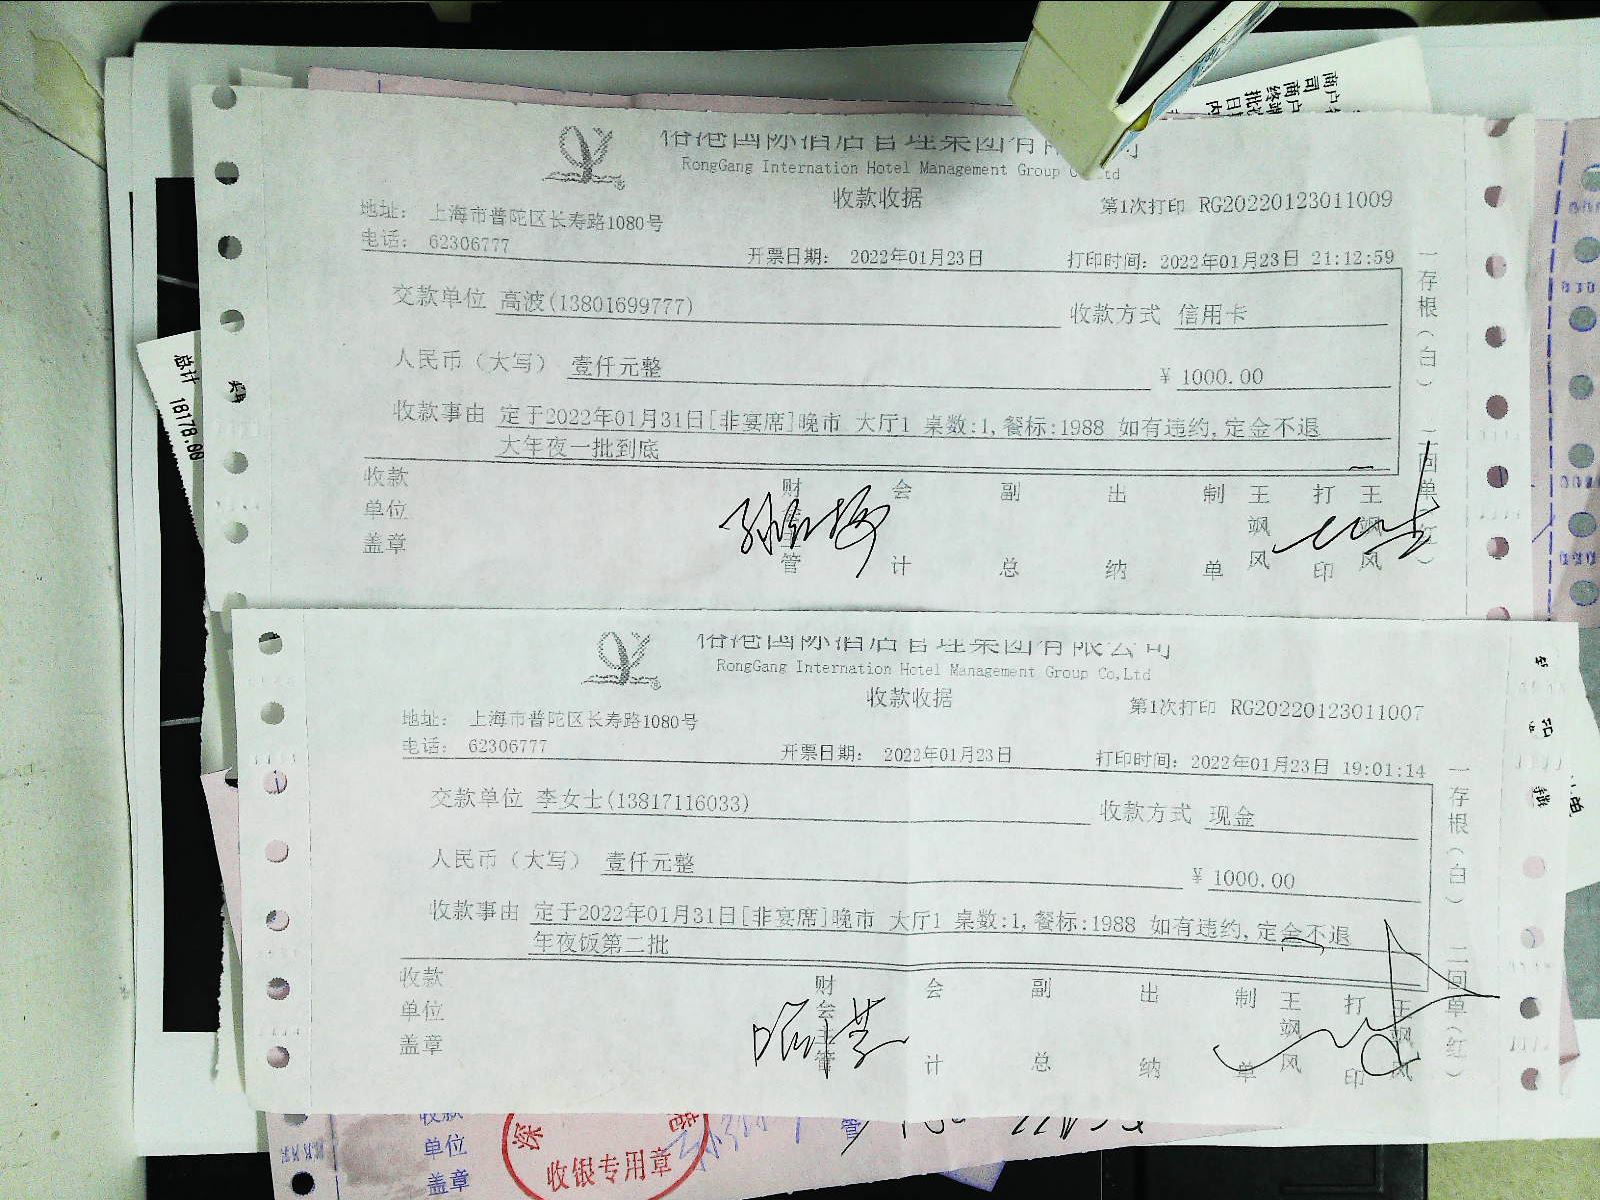 国际酒店管理集团有
RongGang Internation Hotel Management Group Co,Ltd
收款收据
地址: 上海市普陀区长寿路1080号
第1次打印 RG20220123011009
电话: 62306777
开票日期: 2022年01月23日
打印时间: 2022年01月23日 21:12:59
交款单位 高波(13801699777)
收款方式 信用卡
人民币（大写） 壹仟元整
¥ 1000.00
收款事由 定于2022年01月31日[非宴席]晚市 大厅1 桌数:1,餐标:1988 如有违约,定金不退
大年夜一批到底
收款单位盖章
财会主管 会计 副总 出纳 制单 王飒风 打印 王飒风
一存根(白) 二回单(红)
总计 18178.00
港国际酒店管理集团有限公司
RongGang Internation Hotel Management Group Co,Ltd
收款收据
地址: 上海市普陀区长寿路1080号
第1次打印 RG20220123011007
电话: 62306777
开票日期: 2022年01月23日
打印时间: 2022年01月23日 19:01:14
交款单位 李女士(13817116033)
收款方式 现金
人民币（大写） 壹仟元整
¥ 1000.00
收款事由 定于2022年01月31日[非宴席]晚市 大厅1 桌数:1,餐标:1988 如有违约,定金不退
年夜饭第二批
收款单位盖章
财会主管 会计 副总 出纳 制单 王飒风 打印 王飒风
一存根(白) 二回单(红)
收款
单位
盖章
收银专用章